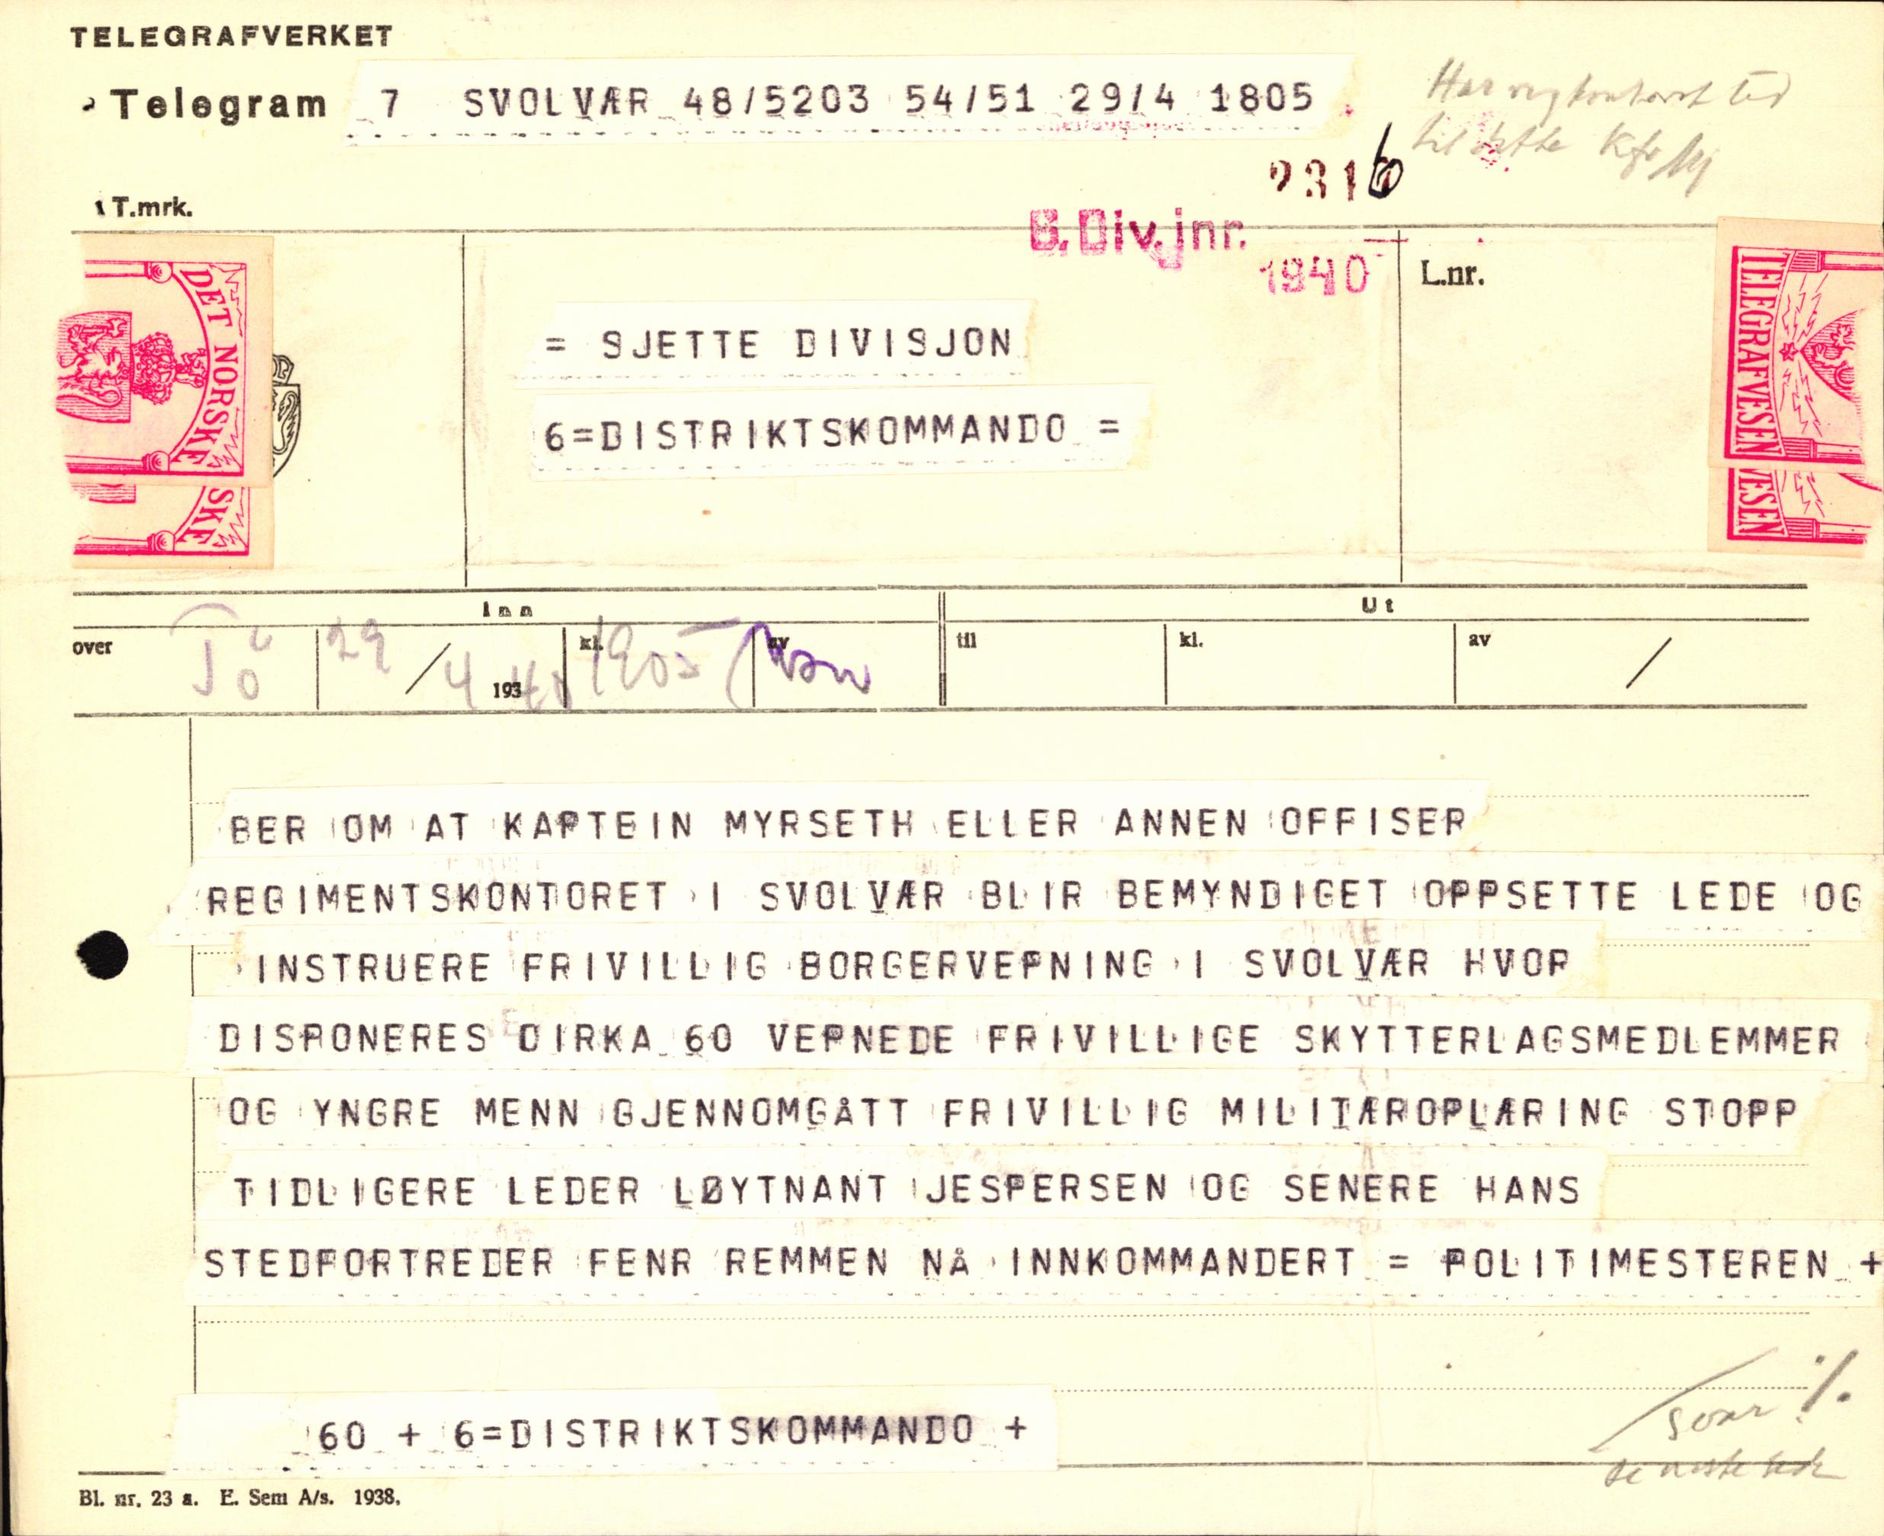 TELEGRAFVERKET
Telegram 7 SVOLVÆR 48/5203 54/51 29/4 1805
til dette
2316
T.mrk.
6. Div. jnr.
1940
L.nr.
DET NORSKE
SKE
TELEGRAFVESEN
VESEN
= SJETTE DIVISJON
6=DISTRIKTSKOMMANDO =
Inn
Ut
over 29/4 1940 kl. 1905 av
til kl. av /
BER OM AT KAPTEIN MYRSETH ELLER ANNEN OFFISER
REGIMENTSKONTORET I SVOLVÆR BLIR BEMYNDIGET OPPSETTE LEDE OG
INSTRUERE FRIVILLIG BORGERVEPNING I SVOLVÆR HVOR
DISPONERES CIRKA 60 VEPNEDE FRIVILLIGE SKYTTERLAGSMEDLEMMER
OG YNGRE MENN GJENNOMGÅTT FRIVILLIG MILITÆROPLÆRING STOPP
TIDLIGERE LEDER LØYTNANT JESPERSEN OG SENERE HANS
STEDFORTREDER FENR REMMEN NÅ INNKOMMANDERT = POLITIMESTEREN +
60 + 6=DISTRIKTSKOMMANDO +
svar %
Bl. nr. 23 a. E. Sem A/s. 1938.